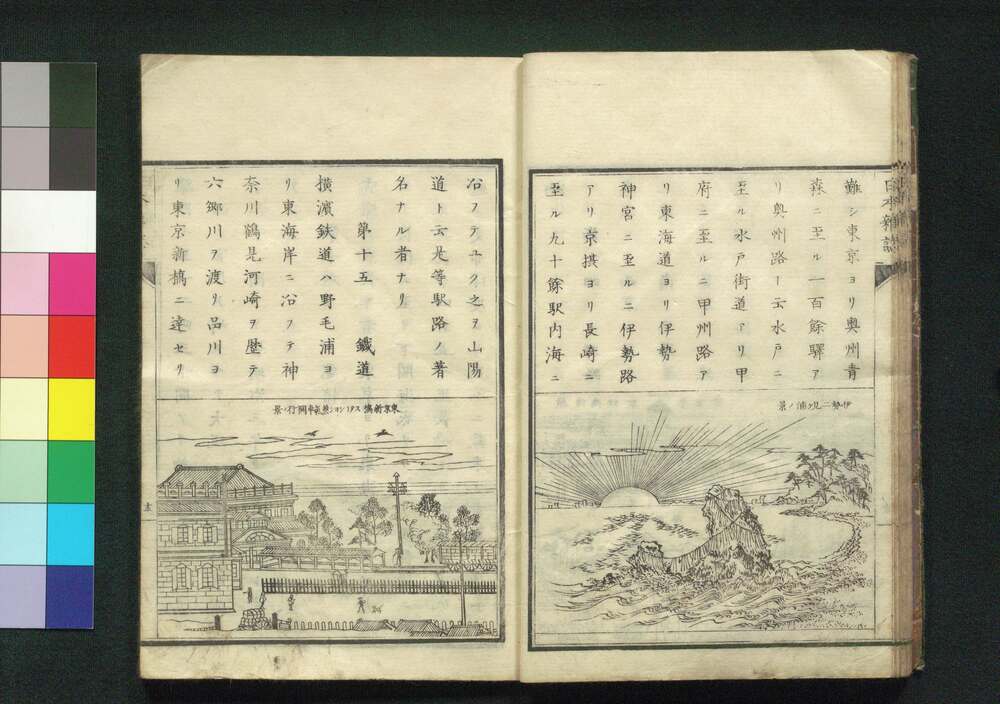 難シ東京ヨリ奥州青
森ニ至ル一百餘驛ア
リ奥州路ト云水戸ニ
至ル水戸街道アリ甲
府ニ至ルニ甲州路ア
リ東海道ヨリ伊勢
神宮ニ至ルニ伊勢路
アリ京摂ヨリ長崎ニ
至ル九十餘駅内海ニ
伊勢二見ノ浦ノ景
沿フテユク之ヲ山陽
道ト云是等駅路ノ著
名ナル者ナリ
第十五 鐵道
横濵鉄道ハ野毛浦ヨ
リ東海岸ニ沿フテ神
奈川鶴見河崎ヲ歴テ
六郷川ヲ渡リ品川ヲ
リ東京新橋ニ達セリ